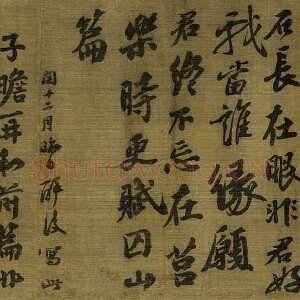 石長在眼非君好
我當誰緣願
君終不忘在莒
樂時更賦囚山
篇
閏十二月晦日醉後寫此
子瞻再和前篇非